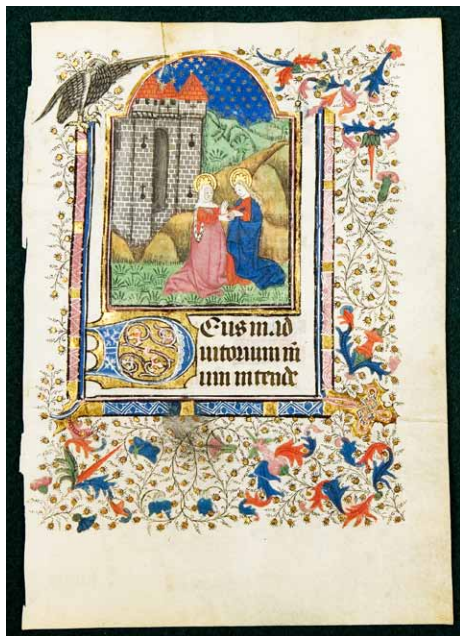 Deus in ad
iutorium m̄
um intende